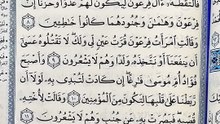 فَٱلْتَقَطَهُۥٓ ءَالُ فِرْعَوْنَ لِيَكُونَ لَهُمْ عَدُوًّا وَحَزَنًا إِنَّ
فِرْعَوْنَ وَهَٰمَٰنَ وَجُنُودَهُمَا كَانُوا۟ خَٰطِـِٔينَ
وَقَالَتِ ٱمْرَأَتُ فِرْعَوْنَ قُرَّتُ عَيْنٍ لِّى وَلَكَ لَا تَقْتُلُوهُ عَسَىٰٓ
أَن يَنفَعَنَآ أَوْ نَتَّخِذَهُۥ وَلَدًا وَهُمْ لَا يَشْعُرُونَ ٩ وَأَصْبَحَ
فُؤَادُ أُمِّ مُوسَىٰ فَٰرِغًا إِن كَادَتْ لَتُبْدِى بِهِۦ لَوْلَآ أَن
رَّبَطْنَا عَلَىٰ قَلْبِهَا لِتَكُونَ مِنَ ٱلْمُؤْمِنِينَ ١٠ وَقَالَتْ لِأُخْتِهِۦ
قُصِّيهِ فَبَصُرَتْ بِهِۦ عَن جُنُبٍ وَهُمْ لَا يَشْعُرُونَ ١١